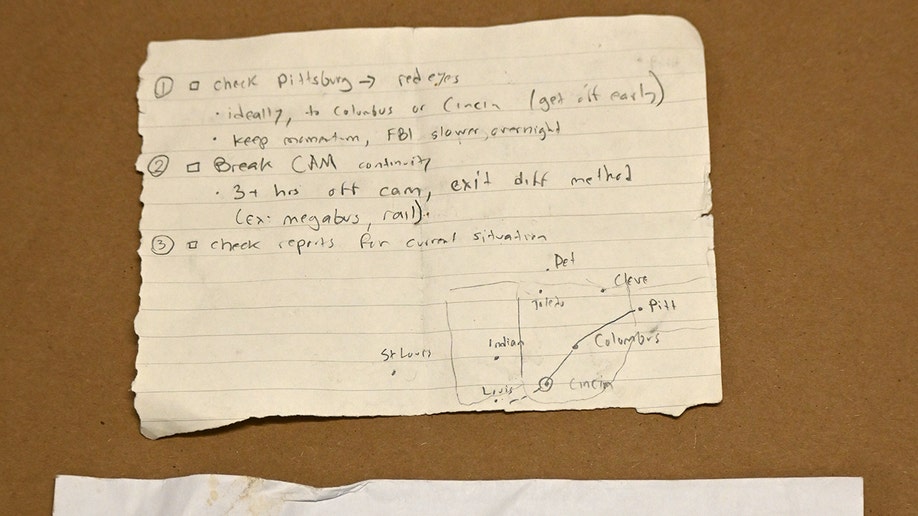 ① □ check Pittsburg → redeyes
• ideally, to Columbus or Cincin (get off early)
• keep momentum, FBI slower overnight
② □ Break CAM continuity
• 3+ hrs off cam, exit diff method
(ex: megabus, rail).
③ □ check reports for current situation
Det
Cleve
Toledo
Pitt
Indian
Columbus
St Louis
Cincin
Louis